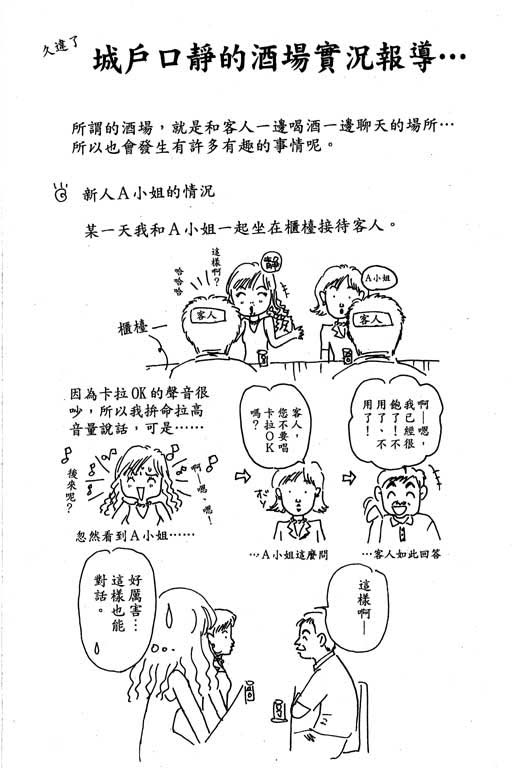 久違了
城戶口靜的酒場實況報導…
所謂的酒場，就是和客人一邊喝酒一邊聊天的場所…
所以也會發生有許多有趣的事情呢。
新人A小姐的情況
某一天我和A小姐一起坐在櫃檯接待客人。
這樣啊？
哈哈哈
靜
A小姐
客人
客人
櫃檯
因為卡拉OK的聲音很
吵，所以我拚命拉高
音量說話，可是……
啊—嗯、嗯！
後來呢？
忽然看到A小姐……
客人，
您不要唱
卡拉OK
嗎？
…A小姐這麼問
啊—嗯，
我已經很
飽了！不
用了、不
用了！
…客人如此回答
這樣啊—
好厲害…
這樣也能
對話。